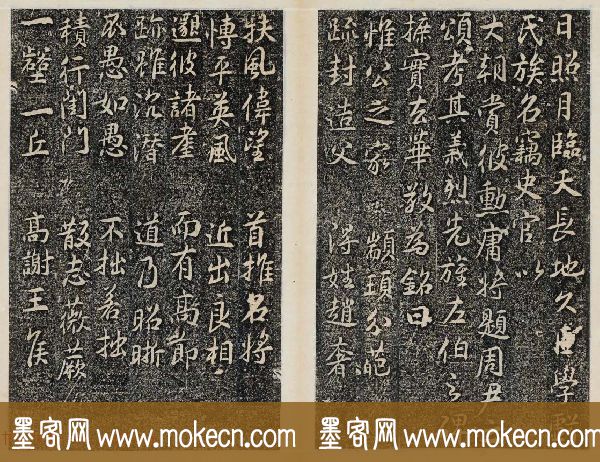 日昭月臨天長地久虛學
民族名竊史官以
大朝賞彼勳庸將題周尹
頌考其義烈先旌左伯之謂
摭實去華敬為銘曰
惟公之家 顓頊分葩
疏封造父 得姓趙奢
扶風偉望 首推名將
博平英風 近出良相
邈彼諸耋 而有高節
跡雖沉潛 道乃昭晣
不愚如愚 不拙若拙
積行閨門 散志薇蕨
一壑一丘 高謝王侯
墨客网 www.mokecn.com
墨客网 www.mokecn.com